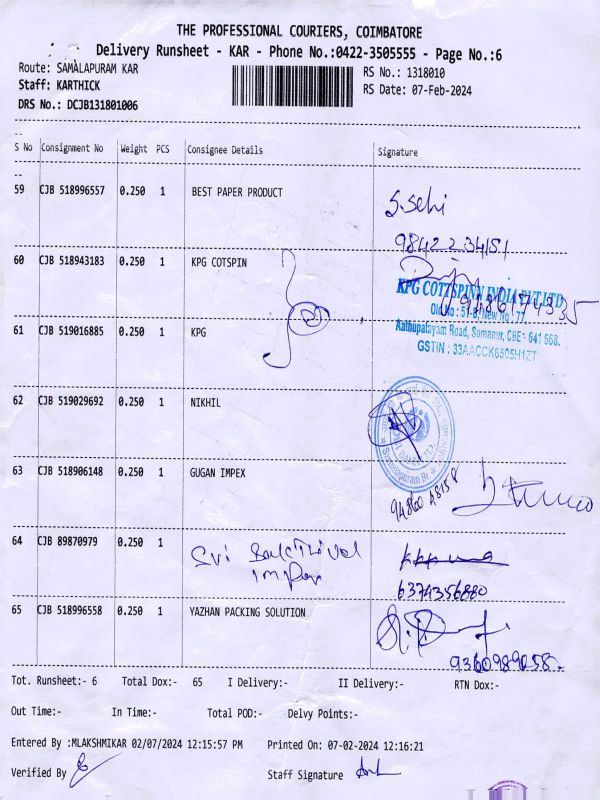 THE PROFESSIONAL COURIERS, COIMBATORE
Delivery Runsheet - KAR - Phone No.:0422-3505555 - Page No.:6
Route: SAMALAPURAM KAR
RS No.: 1318010
Staff: KARTHICK
RS Date: 07-Feb-2024
DRS No.: DCJB131801006
S No Consignment No Weight PCS Consignee Details Signature
59 CJB 518996557 0.250 1 BEST PAPER PRODUCT
98422 34151
60 CJB 518943183 0.250 1 KPG COTSPIN
KPG COTTSPINN INDIA PVT LTD
Aathupalayam Road, Samanur, CBE - 641 668.
GSTIN : 33AACCK6505H1ZT
61 CJB 519016885 0.250 1 KPG
62 CJB 519029692 0.250 1 NIKHIL
63 CJB 518906148 0.250 1 GUGAN IMPEX
64 CJB 89870979 0.250 1
Sri
6374356880
65 CJB 518996558 0.250 1 YAZHAN PACKING SOLUTION
9360989058
Tot. Runsheet:- 6 Total Dox:- 65 I Delivery:- II Delivery:- RTN Dox:-
Out Time:- In Time:- Total POD:- Delvy Points:-
Entered By :MLAKSHMIKAR 02/07/2024 12:15:57 PM Printed On: 07-02-2024 12:16:21
Verified By Staff Signature